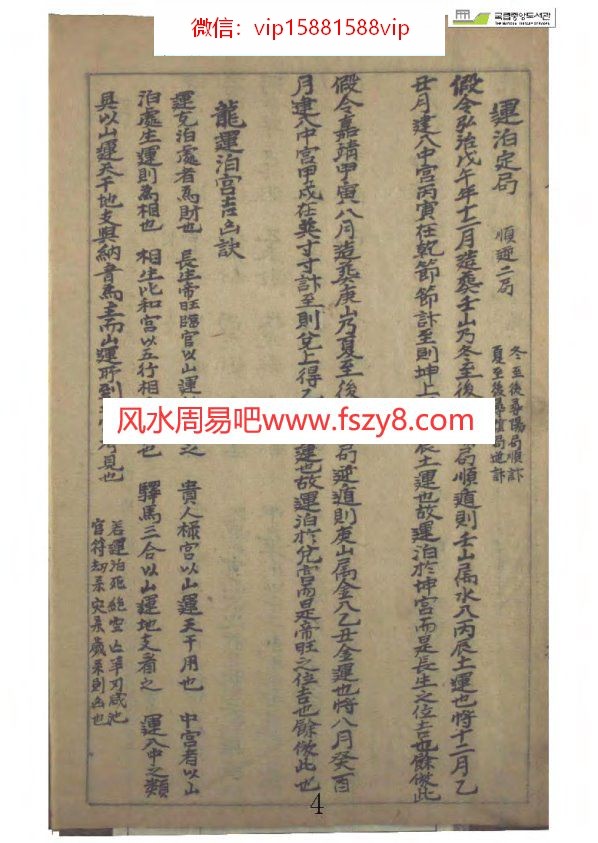 微信：vip15881588vip
국립중앙도서관
運泊定局 順逆二局 冬至後尋陽局順計
夏至後尋陰局逆計
假令弘治戊午年十二月造葬壬山乃冬至後 局順遁則壬山屬水八丙辰土運也將十二月乙
丑月建入中宮丙寅在乾節節計至則坤上 辰土運也故運泊於坤宮而是長生之位吉也餘倣此
假令嘉靖甲寅八月造葬庚山乃夏至後 局逆遁則庚山屬金八乙丑金運也將八月癸酉
月建入中宮甲戌在巽寸寸計至則兌上得乙 運也故運泊於兌宮而是帝旺之位吉也餘倣此也
龍運泊宮吉凶訣
運克泊處者爲財也 長生帝旺臨官以山運 之 貴人祿宮以山運天干用也 中宮者以山
泊處生運則爲相也 相生比和宮以五行相 也 驛馬三合以山運地支看之 運入中之類
具以山運天干地支與納音爲主而山運所到 見也 若運泊死絶空亡羊刃咸池
官符劫杀灾杀歲杀則凶也
风水周易吧www.fszy8.com
4